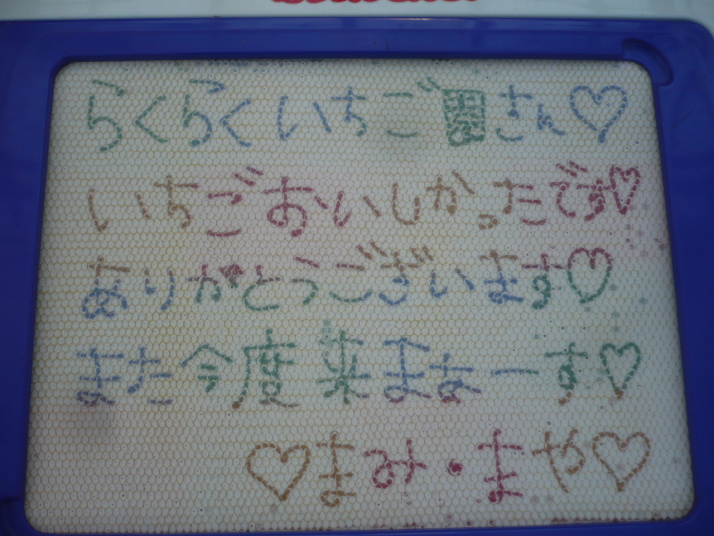 らくらくいちご園さん♡
いちごおいしかったです♡
ありがとうございます♡
また今度来まぁーす♡
♡まみ・まや♡